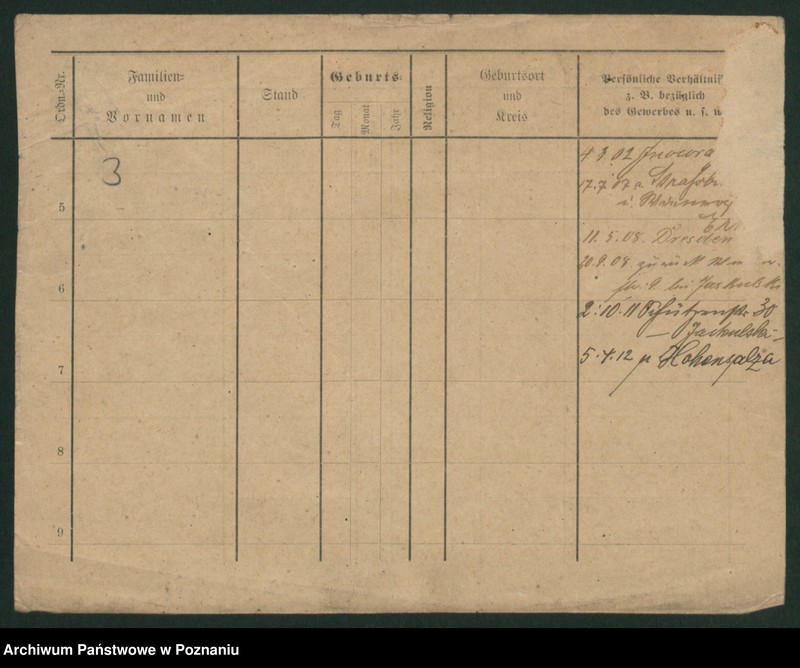 Ordn.-Nr.
Familien-
und
Vornamen
Stand
Geburts-
Tag
Monat
Jahr
Religion
Geburtsort
und
Kreis
Persönliche Verhältni
z. B. bezüglich
des Gewerbes u. s. w
3
4 3 02 Inowra
17.7.07
5
11. 5. 08. Dresden
20.9.08 zurück
6
2. 10. 11 Schützenstr 30
7
5. 4. 12 Hohensalza
8
9
Archiwum Państwowe w Poznaniu